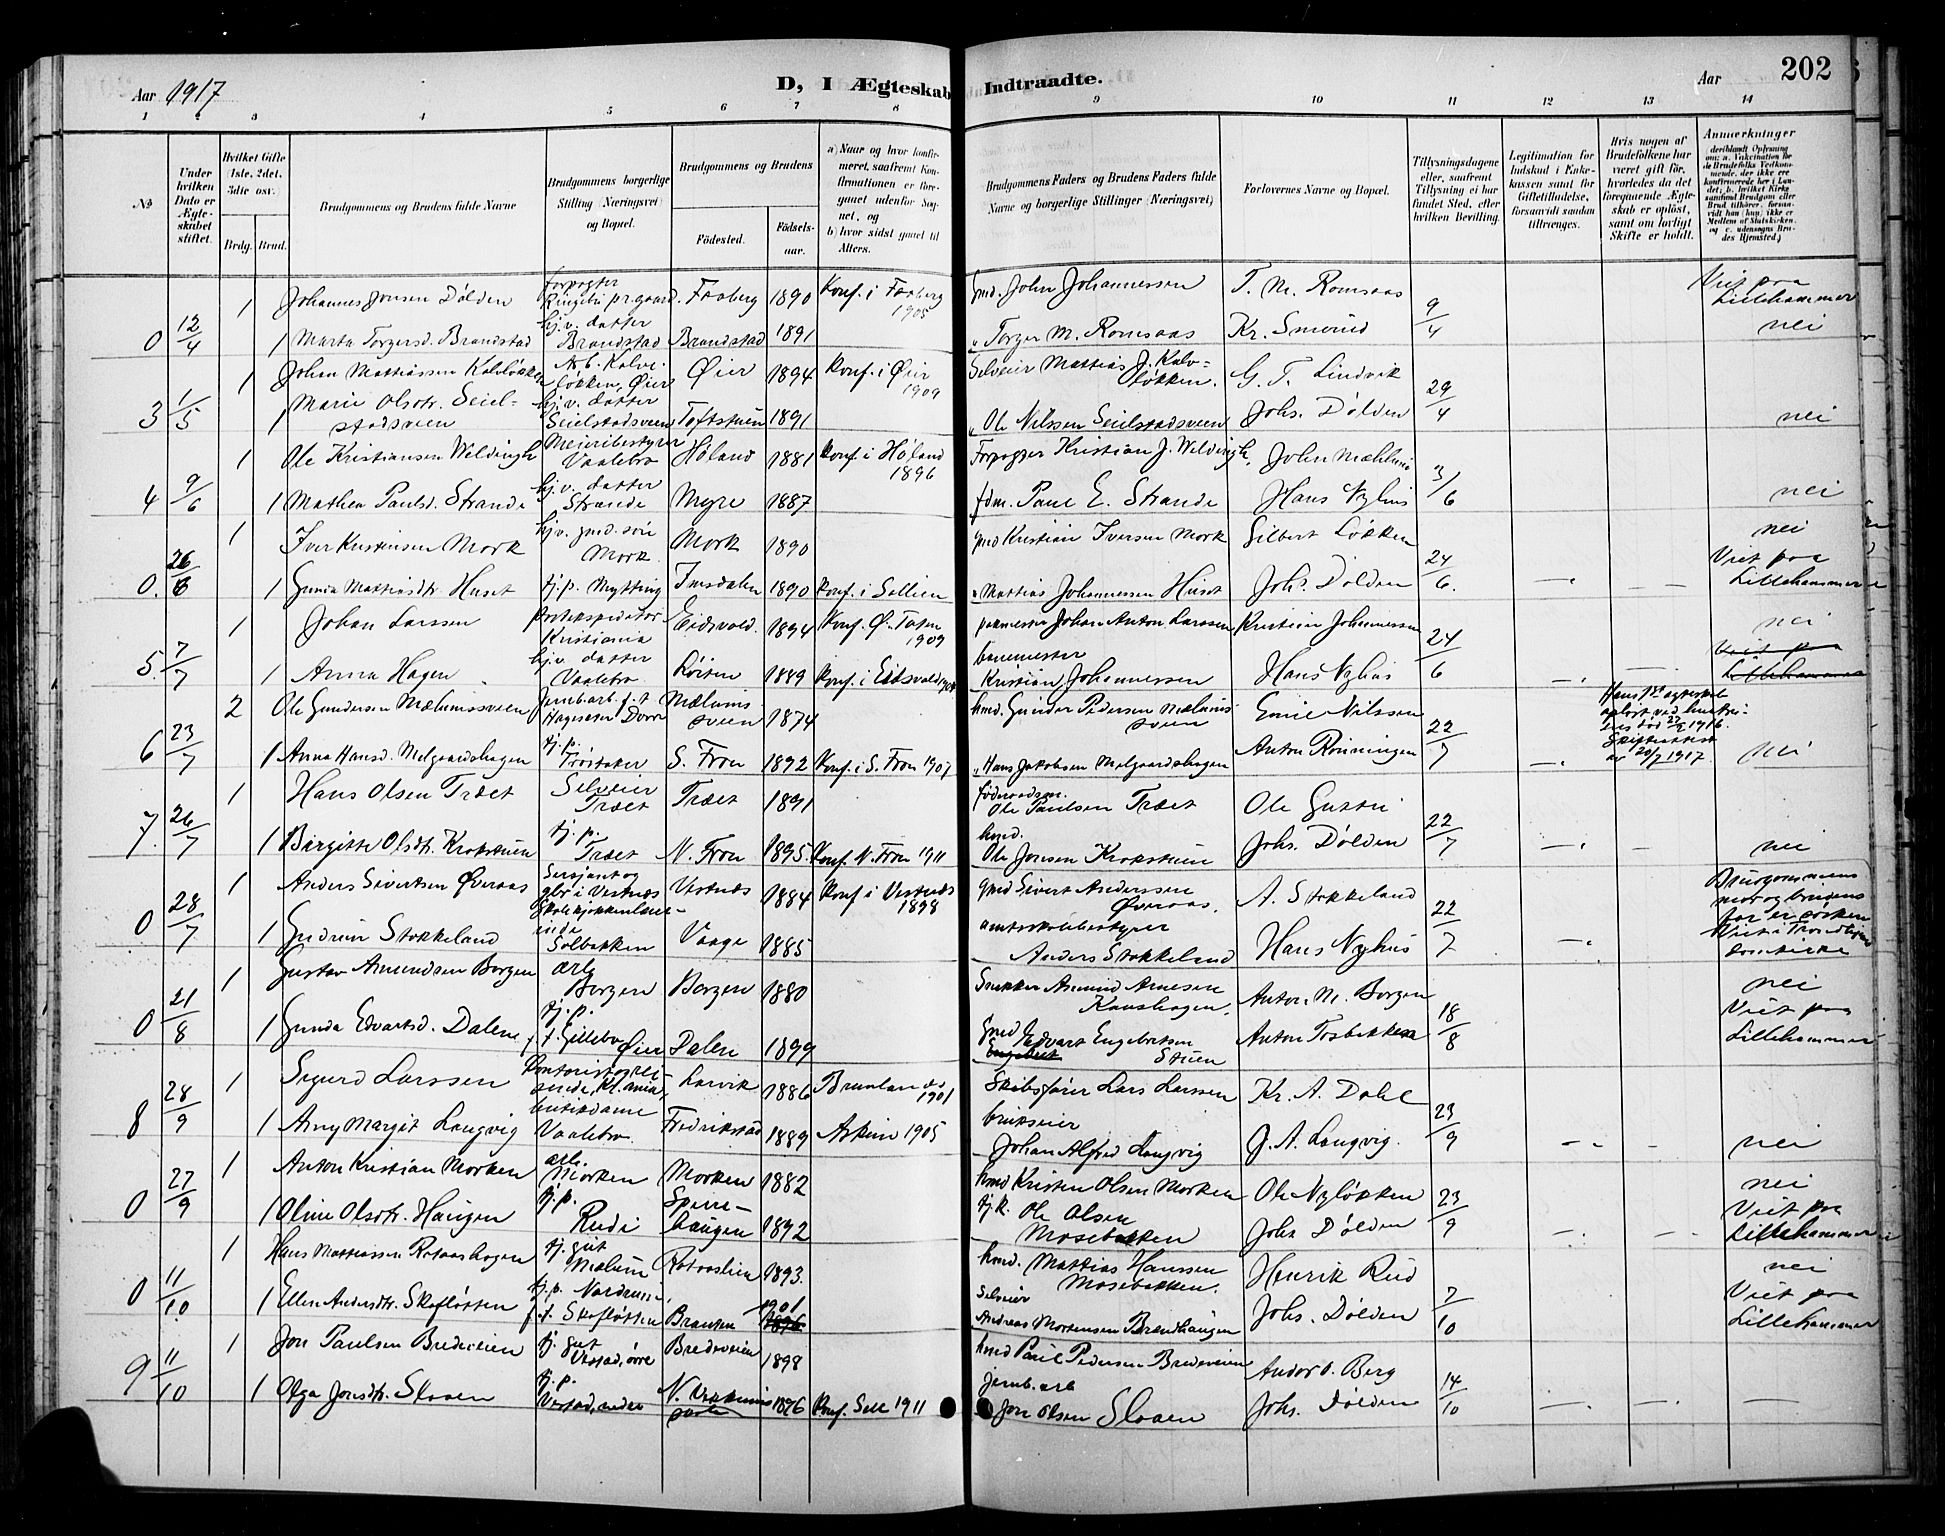 Aar 1917
D, I Ægteskab Indtraadte.
Aar
202
1 2 3 4 5 6 7 8 9 10 11 12 13 14
No
Under hvilken Dato er Ægteskabet stiftet.
Hvilket Gifte (1ste, 2det, 3die osv.
Brdg. Brud.
Brudgommens og Brudens fulde Navne
Brudgommens borgerlige Stilling (Næringsvei) og Bopæl.
Brudgommens og Brudens
Fødested.
Fødselsaar.
a) Naar og hvor konfirmeret, saafremt Konfirmationen er foregaaet udenfor Sognet, og
b) hvor sidst gaaet til Alters.
Brudgommens Faders og Brudens Faders fulde Navne og borgerlige Stillinger (Næringsvei)
Forlovernes Navne og Bopæl.
Tillysningsdagene eller, saafremt Tillysning ei har fundet Sted, efter hvilken Bevilling.
Legitimation for Indskud i Enkekassen samt for Giftetilladelse, forsaavidt saadan tiltrænges.
Hvis nogen af Brudefolkene har været gift før, hvorledes da det foregaaende Ægteskab er opløst, samt om lovligt Skifte er holdt.
Anmerkninger
1 Johannes Jonsen Dølden Forpagter Ringebu pr.gaard. Faaberg 1890 Konf. i Faaberg 1905 Gmd. John Johannessen T. M. Romsaas Viet paa Lillehammer
0 12/4 1 Marta Torgersd. Brandstad hj.v. datter Brandstad Brandstad 1891 " Torger M. Romsaas Kr. Smiud 9/4 nei
1 Johan Mattiassen Kalvløkken Arb. Kalveløkken, Øier Øier 1894 Konf. i Øier 1909 Selveier Mattias J. Kalvløkken. G. T. Lindvik
3 1/5 1 Marie Olsdtr. Seielstadsveen hj.v. datter Seielstadsveen Toftstuen 1891 " Ole Nilssen Seielstadsveen Johs. Dølden 29/4 nei
1 Ole Kristiansen Weldingh Meieribestyrer Vaalebro Høland 1881 Konf. i Høland 1896 Forpagter Kristian J. Weldingh, John Mæhlum
4 9/6 1 Mathea Paulsd. Strande hj.v. datter Strande Myre 1887 fdm. Paul E. Strande Hans Nyhus 3/6 nei
1 Iver Kristensen Mork hj.v. gmd. søn Mork Mork 1890 gmd Kristian Iversen Mork Gilbert Løkken nei
0. 26/6 1 Gunda Mattiasdtr. Huset tj.p. Mytting Imsdalen 1890 Konf. i Sollien " Mattias Johannessen Huset Johs. Dølden 24/6. Viet paa Lillehammer
1 Johan Larssen Kristiania Eidsvold. 1894 Konf. Ø. Toten 1909 Johan Anton Larssen Kristian Johannessen nei
5. 7/7 1 Anna Hagen hj.v. datter Vaalebro Løiten 1889 Konf. i Eidsvold 1904 banemester Kristian Johannessen Hans Nyhus 24/6 Viet paa Lillehammer
2 Ole Gundersen Mælumsveen Jernb.arb. f.t. Dovre Mælumsveen 1874 hmd. Gunder Pedersen Mælumsveen Emil Nilssen Hans 1ste egteskab opløst ved hustruens død 27/2 1916. Skifteattest av 20/7 1917.
6 23/7 1 Anna Hansd. Melgaardshagen tj.p. S. Fron 1892 Konf. i S. Fron 1907 " Hans Jakobsen Melgaardshagen Anton Rønningen 22/7 nei
1 Hans Olsen Træet Selveier Træet Træet 1891 føderaadsm. Ole Paulsen Træet Ole Gustu
7. 26/7 1 Birgitte Olsdtr. Krokstuen tj.p. Træet N. Fron 1895 Konf. N. Fron 1911 hmd. Ole Jonsen Krokstuen Johs. Dølden 22/7 nei
1 Anders Sivertsen Øveraas Sersjant og gbr i Vestnæs Vestnæs 1884 Konf i Vestnæs 1898 gmd Sivert Anderssen Øveraas. A. Stokkeland Brudgommens mor og brudens far er søsken
0 28/7 1 Gudrun Stokkeland Skolekjøkkenlærerinde Solbakken Vaage 1885 amtsskolebestyrer Anders Stokkeland Hans Nyhus 22/7 Viet i Trondhjems domkirke
1 Gustav Amundsen Borgen arb Borgen Borgen 1880 Snekker Amund Arnesen Anton M. Borgen nei
0 21/8 1 Gunda Edvartsd. Dalen tj.p. f.t. Gillebo Øier Dalen 1899 Gmd Edvart Engebretsen Stuen Anton Tosbakken 18/8 Viet paa Lillehammer
1 Sigurd Larssen Kr.ania, Larvik 1886 Brunlanes 1901 Skibsfører Lars Larssen Kr. A. Dahl
8 28/9 1 Arny Margit Langvig butikdame Vaalebro Fredrikstad 1889 Askim 1905 brukseier Johan Alfred Langvig J. A. Langvig. 23/9 nei
1 Anton Kristian Morken arb. Morken Morken 1882 hmd Kristen Olsen Morken Ole Nyløkken nei
0 27/9 1 Oline Olsdtr. Haugen tj.p. Rudi Sperrehaugen 1892 tj.k. Ole Olsen Mosebakken Johs Dølden 23/9 Viet paa Lillehammer
1 Hans Mattiassen Rotaashagen tj. gut Mælum Rotaaslien 1893. hmd. Mattias Hanssen Mosebakken. Henrik Rud nei
0 11/10. 1 Ellen Andersdtr. Skofløtten tj.p. Nordrum, f.t. Skofløtten Brauten 1901 1896 Selveier Andreas Mortensen Brendhaugen Johs. Dølden 7/10 Viet paa Lillehammer
1 Jon Paulsen Bredeveien tj. gut Vestad, øvre Bredeveien 1898 hmd Paul Pedersen Bredeveien Andor O. Berg
9 11/10 1 Olga Jonsdtr. Slaaen tj.p. Vestad, nedre 1896 Konf. Sell 1911 jernb. arb Jon Olsen Slaaen Johs. Dølden 14/10